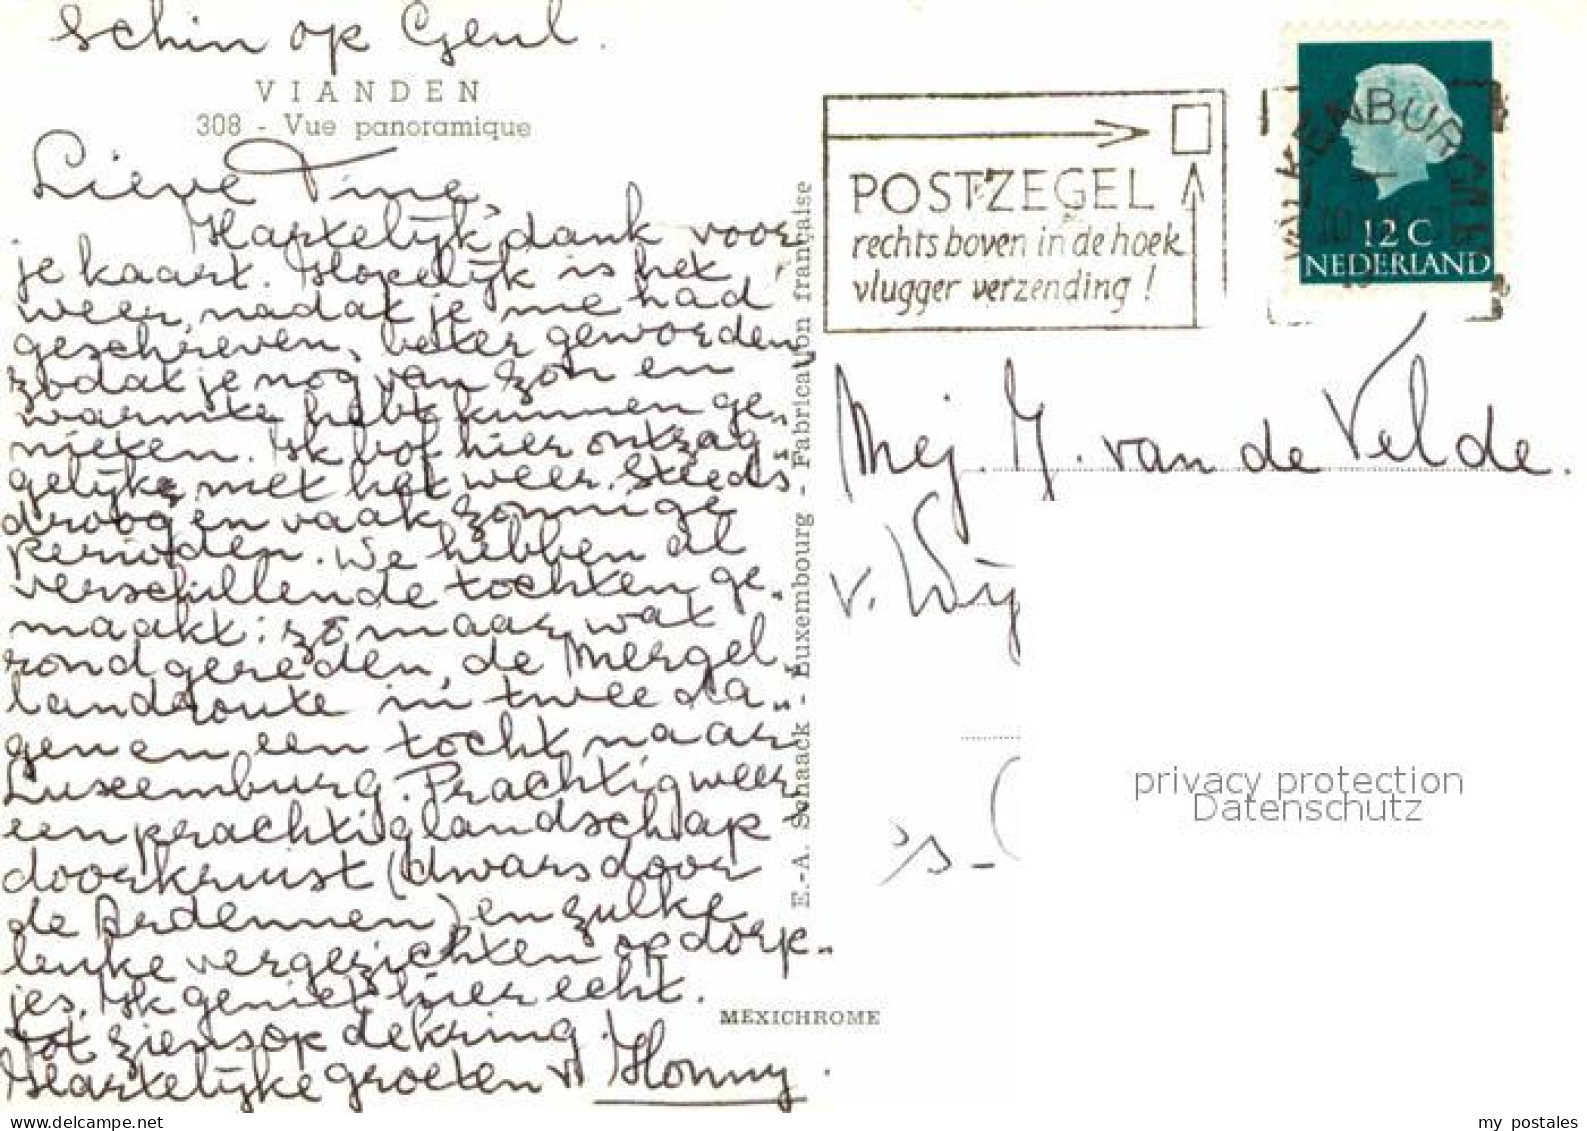 Schin op Geul.
VIANDEN
308 - Vue panoramique
Lieve Tine,
Hartelijk dank voor
je kaart. Hopelijk is het
weer, nadat je me had
geschreven, beter geworden,
zodat je nog van zon en
warmte hebt kunnen ge„
nieten. Ik bof hier ontzag„
gelijk met het weer. Steeds
droog en vaak zonnige
perioden. We hebben al
verschillende tochten ge„
maakt: zo maar wat
rondgereden, de Mergel„
landroute in twee da„
gen en een tocht naar
Luxemburg. Prachtig weer
een prachtig landschap
doorkruist (dwars door
de Ardennen) en zulke
leuke vergezichten op dorp„
jes. Ik geniet hier echt.
Tot ziens op de kring.
Hartelijke groeten v. Honny.
E.-A. Schaack - Luxembourg - Fabrication française
MEXICHROME
POSTZEGEL
rechts boven in de hoek
vlugger verzending!
VALKENBURG
12 C
NEDERLAND
Mej. J. van de Velde.
v. Wij
's-
privacy protection
Datenschutz
my postales